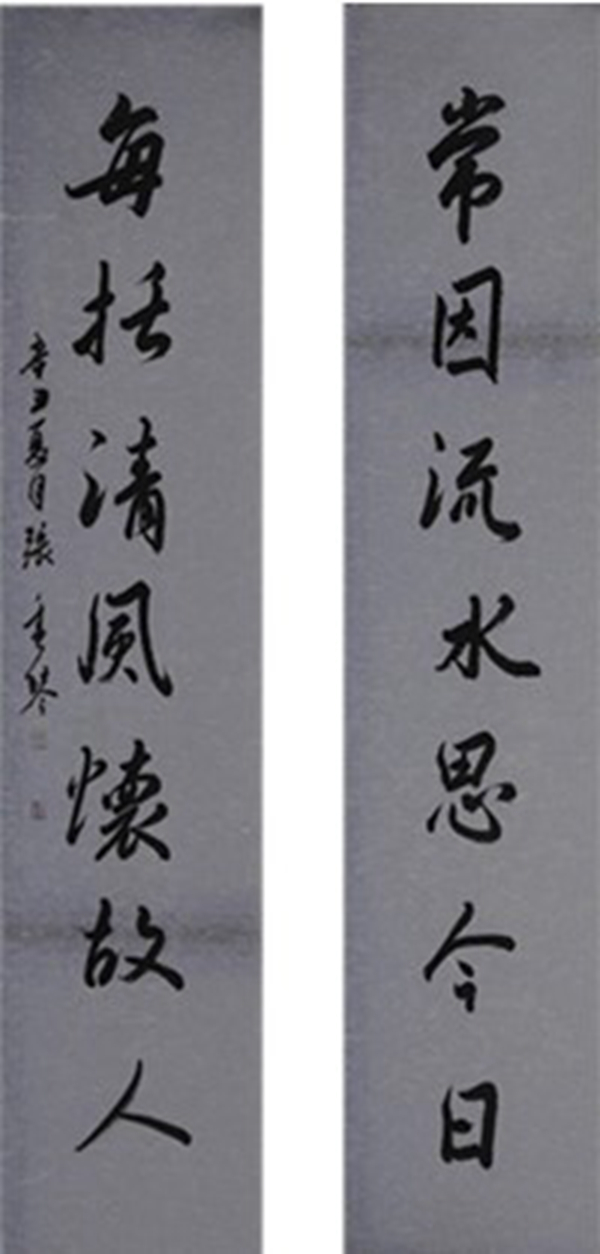 常因流水思今日
每挹清風懷故人
辛丑夏月張重琴